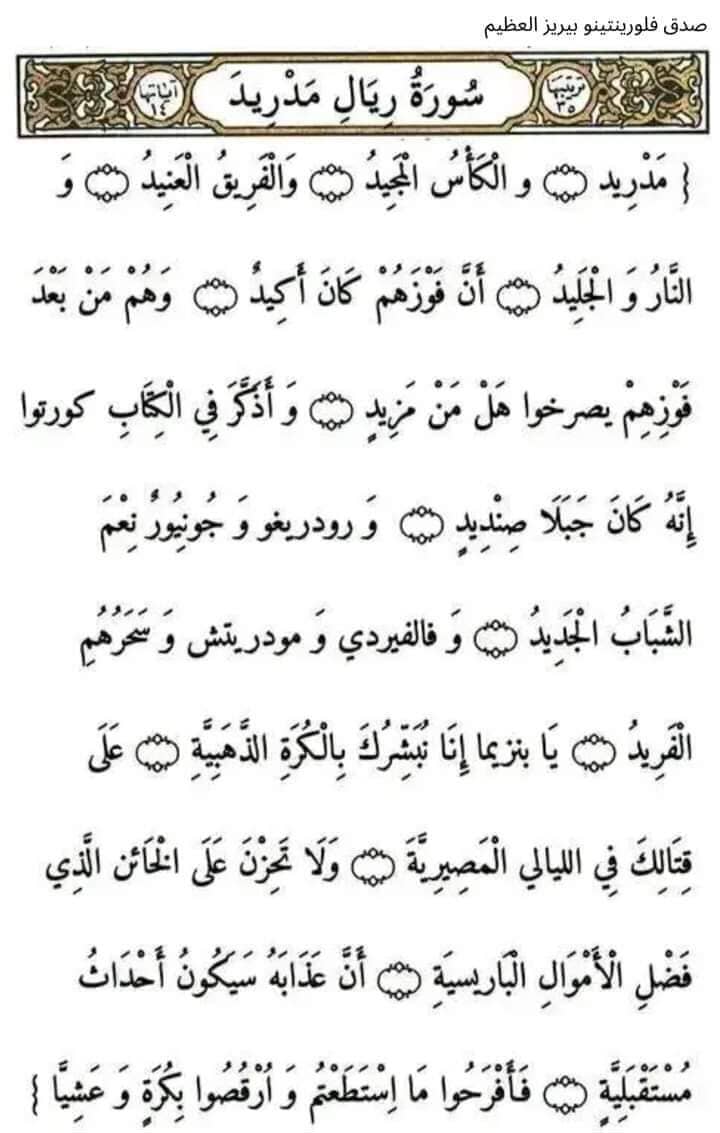 صدق فلورينتينو بيريز العظيم
ترتيبها ٣٥ سُورَةُ رِيَالِ مَدْرِيدَ آياتها ١٤
{ مَدْرِيد ۝ و الْكَأْسُ الْمَجِيدُ ۝ وَالْفَرِيقُ الْعَنِيدُ ۝ وَ
النَّارُ وَ الْجَلِيدُ ۝ أَنَّ فَوْزَهُمْ كَانَ أَكِيدٌ ۝ وَهُمْ مَنْ بَعْدَ
فَوْزِهِمْ يصرخوا هَلْ مَنْ مَزِيدٍ ۝ وَ أَذَكَّرَ فِي الْكِتَابِ كورتوا
إِنَّهُ كَانَ جَبَلَا صِنْدِيدٍ ۝ وَ رودريغو وَ جُونِيُورٌ نِعْمَ
الشَّبَابُ الْجَدِيدُ ۝ وَ فالفيردي وَ مودريتش وَ سَحَرُهُمِ
الْفَرِيدُ ۝ يَا بنزيما إِنَا نُبَشِّرُكَ بِالْكُرَةِ الذَّهَبِيَّةِ ۝ عَلَى
قِتَالِكَ فِي الليالي الْمَصِيرِيَّةَ ۝ وَلَا تَحِزْنَ عَلَى الْخَائن الَّذِي
فَضْلِ الْأَمْوَالِ الْبَاريسيَةِ ۝ أَنَّ عَذَابَهُ سَيَكُونُ أَحْدَاثُ
مُسْتَقْبَلِيَّةٍ ۝ فَأَفْرَحُوا مَا اِسْتَطَعْتُمْ وَ اُرْقُصُوا بِكُرَةٍ وَ عَشِيَّا }